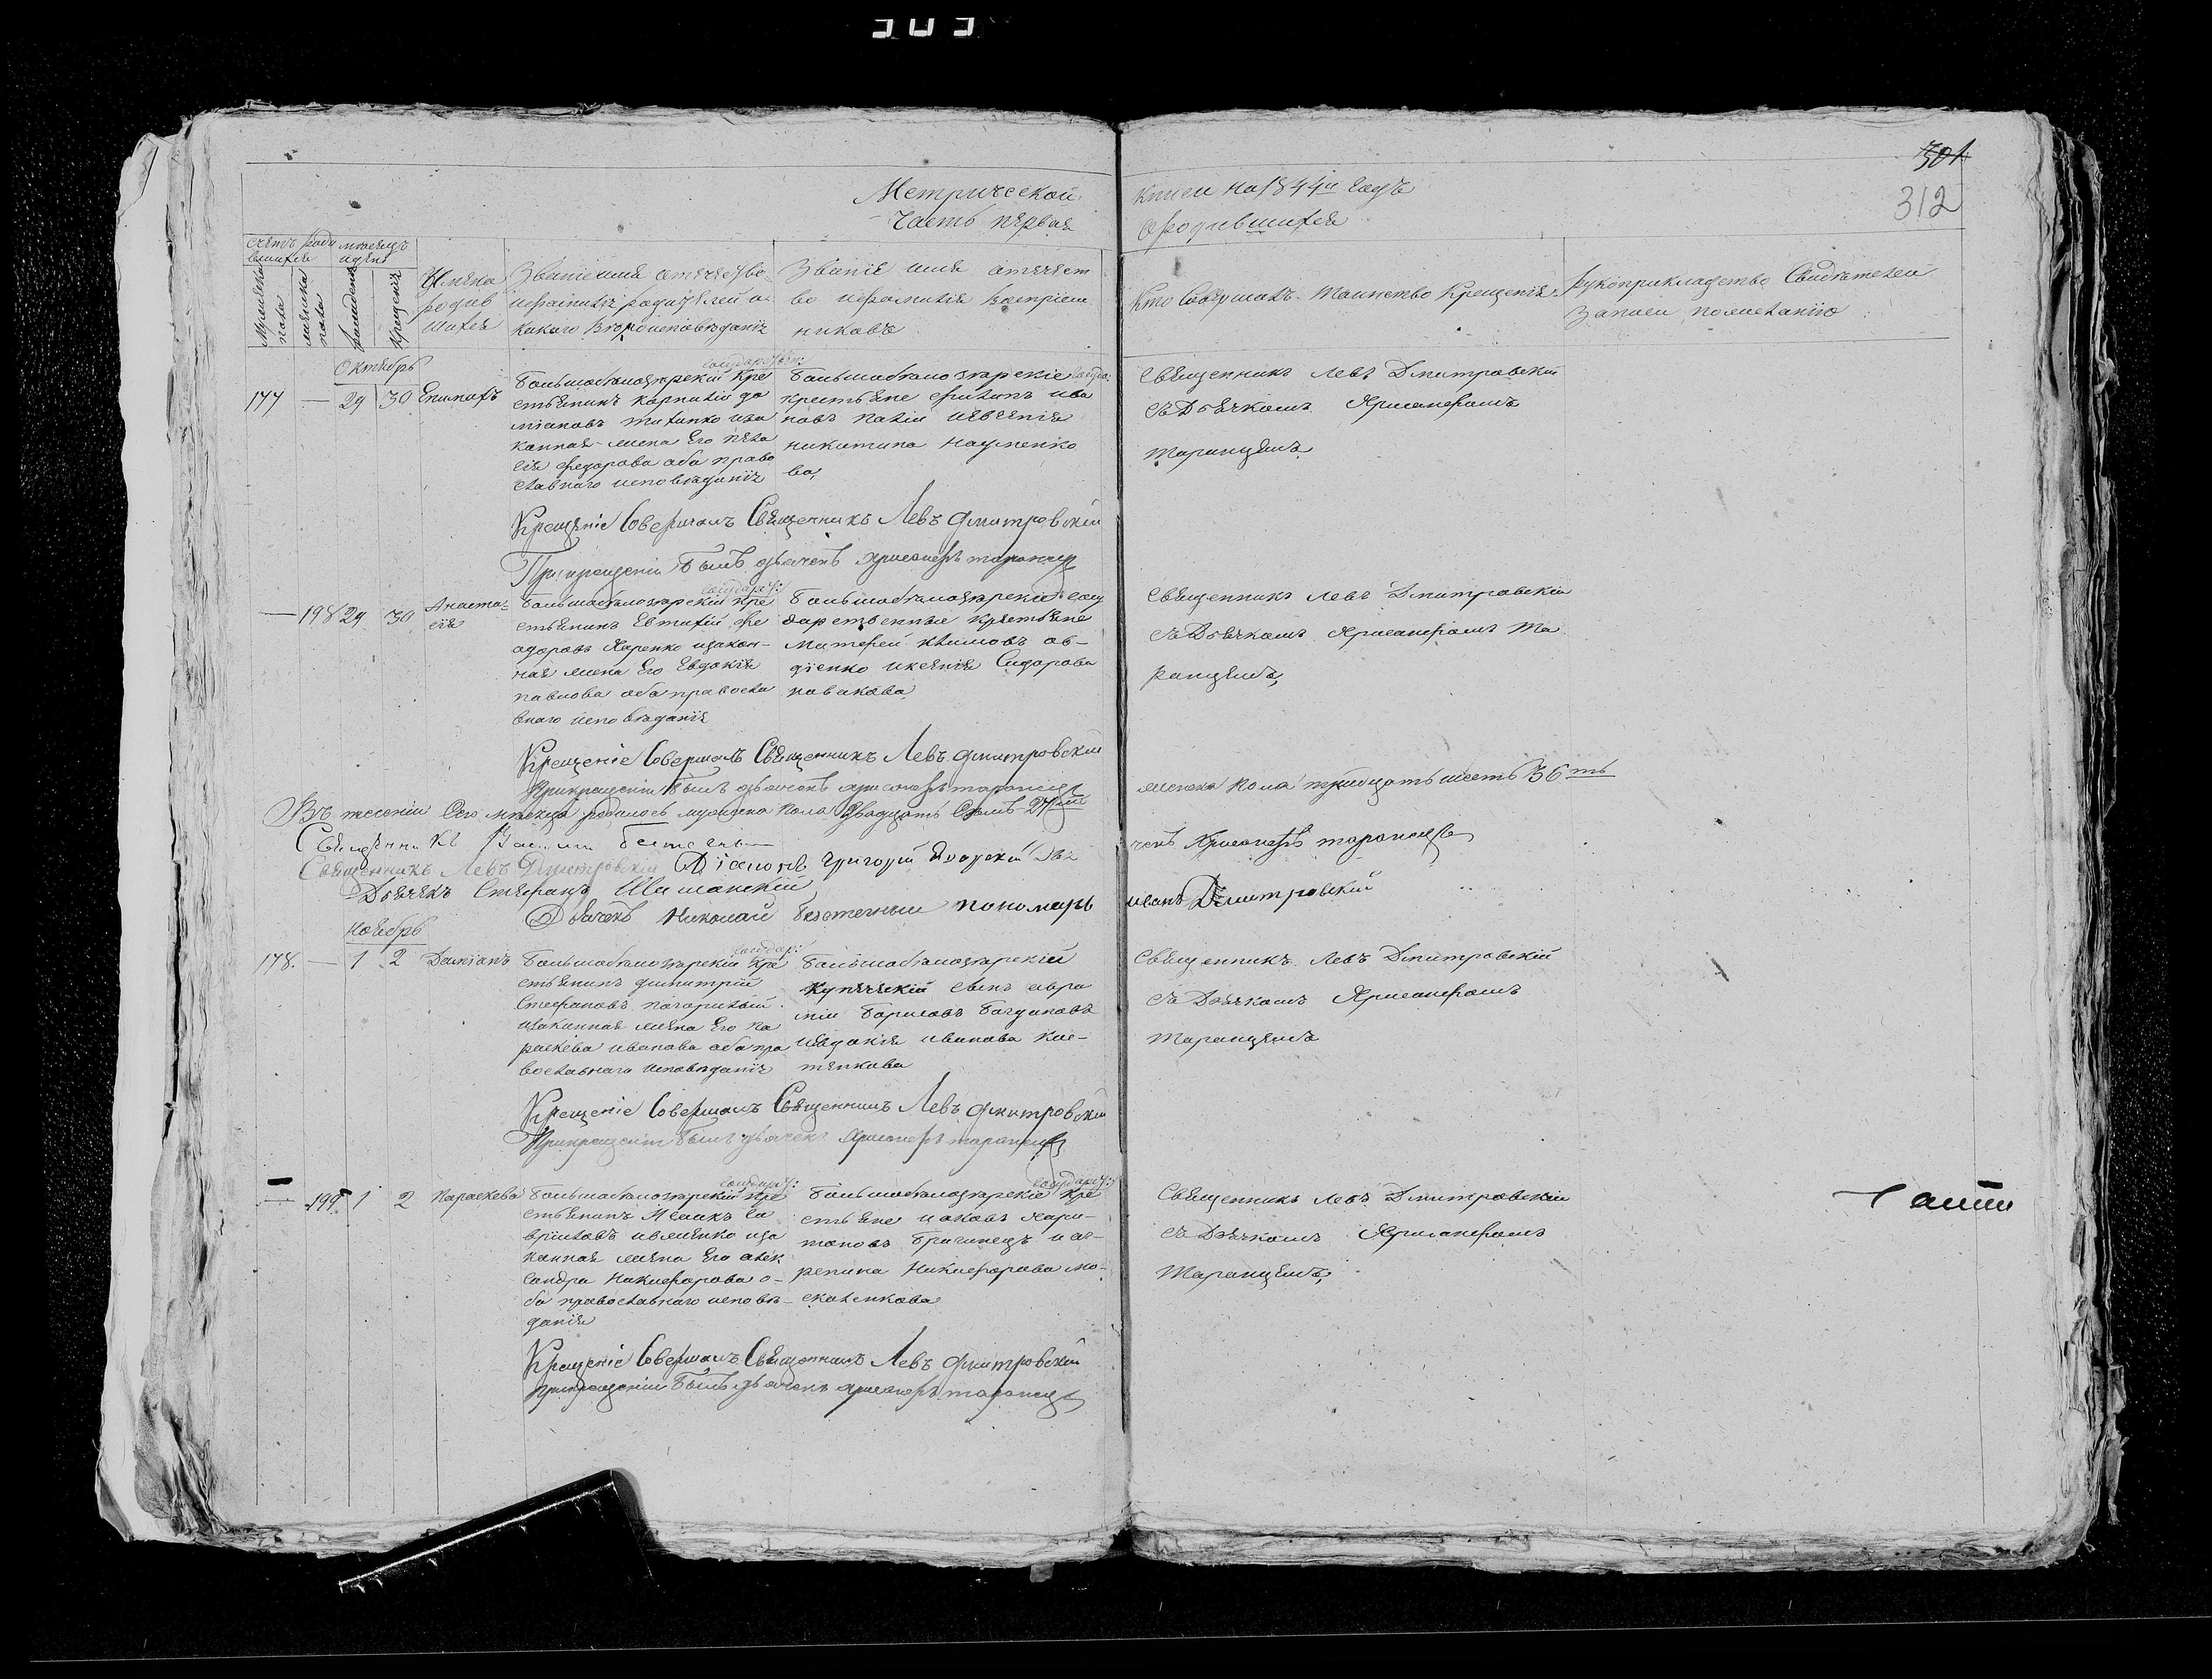 303
301
312
Метрической книги на 1844й годъ
Часть первая о родившихся
Счетъ роди вшихся
Мужеска пола
женска пола
мѣсяцъ и день
рожденія
Крещенія
Имена родив шихся
Званіе имя отечество и фамилія родителей и какого вѣроисповѣданія
Званіе имя отечест во и фамилія воспріем никовъ
Кто совершалъ таинство Крещенія
Рукоприкладство свидѣтелей записи по желанію
Октябрь
177 — 29 30 Епимахъ
Большебѣлозерскій государ: кре
стьянинъ
міановъ и за
конная жена его пела
гія федорова оба право
славнаго исповѣданія
Большебѣлозерскіе госуда:
крестьяне ива
новъ и евгенія
никитина Науменко
ва,
Священникъ Левъ Дмитровскій
съ Дьячкомъ Ярисанфомъ
Таранцемъ
Крещеніе Совершалъ Священникъ Левъ Дмитровскій
При крещеніи былъ дьячекъ Хрисанфъ таранец
— 198 29 30 Анаста-
сія
Большебѣлозерскій государ: кре
стьянинъ Евтихій фе
одоровъ и закон-
ная жена его Евдокія
павлова оба правосла
внаго исповѣданія
Большебѣлозерскіе госу
дарственные крестьяне
Матфей климовъ ав-
діенко и ксенія Сидорова
новакова
Священникъ Левъ Дмитровскій
съ Дьячкомъ Ярисанфомъ Та
ранцемъ,
Крещеніе Совершалъ Священникъ Левъ Дмитровскій
При крещеніи былъ дьячекъ хрисанфъ таранец
Въ теченіи Сего мѣсяца родилось мужеска пола двадцать семь 27мь женска пола тридцать шесть 36ть
Священникъ
Священникъ Левъ Дмитровскій Діаконъ Григорій Дья чекъ Хрисанфъ таранец
Дьячекъ Стефанъ Шиманскій
Дьячекъ Николай пономарь иванъ Дмитровскій
Ноябрь
178. — 1 2 Даміанъ
Большебѣлозерскій государ: кре
стьянинъ димитрій
Стефановъ погорилый
и законная жена его па
раскева иванова оба пра
вославнаго исповѣданія
Большебѣлозерскій
купеческій сынъ авра
мій Борисовъ Богдановъ
и евдокія иванова кос-
тенкова
Священникъ Левъ Дмитровскій
съ Дьячкомъ Ярисанфомъ
Таранцемъ
Крещеніе Совершалъ Священникъ Левъ Дмитровскій
При крещеніи былъ дьячекъ Хрисанфъ таранец
— 199 1 2 Параскева
Большебѣлозерскій государ: кре
стьянинъ Исаакъ Га
вриловъ ивженко и за
конная жена его алек
сандра Никифорова о-
ба православнаго исповѣ-
данія
Большебѣлозерскіе государ: кре
стьяне иаковъ хари-
тоновъ Брагинецъ и аг-
репина Никифорова мо-
скаленкова
Священникъ Левъ Дмитровскій
съ Дьячкомъ Ярисанфомъ
Таранцемъ,
Крещеніе Совершалъ Священникъ Левъ Дмитровскій
При крещеніи былъ дьячекъ хрисанфъ таранец